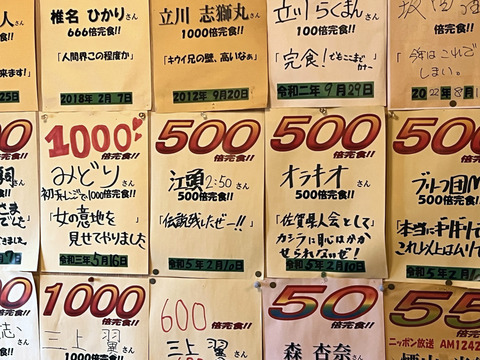 人さん
倍完食!!
来ます!」
25日
椎名 ひかりさん
666倍完食!!
「人間界この程度か」
2018年 2月 7日
立川 志獅丸さん
1000倍完食!!
「キウイ兄の壁、高いなぁ」
2012年 9月20日
立川らくまんさん
100倍完食!!
「完食!でもここまでか〜」
令和二年 9月29日
倍完食!!
「今年はこれで
しまい。」
2022年8月1
00
倍完食!!
さん
倍完食!!
さま
でした」
7日
1000倍完食!!
みどりさん
初チャレンジで1000倍完食!!
「女の意地を
見せてやりました」
令和三年 5月16日
500
倍完食!!
江頭2:50さん
500倍完食!!
「伝説残したぜー!!」
令和5年 2月10日
500
倍完食!!
オラキオさん
500倍完食!!
「佐賀県人会として
カシラに恥はかか
せられないぜ!」
令和5年 2月10日
500
倍完食!!
ブリーフ団M
500倍完食!!
「本当にギリギリで
これ以上はムリで
令和5年 2月1
00
倍完食!!
志
倍完食!!
1000
倍完食!!
三上 翼さん
1000倍完食!!
600
倍完食!!
三上 翼さん
50
倍完食!!
森 杏奈さん
55
倍完食!!
ニッポン放送 AM1242